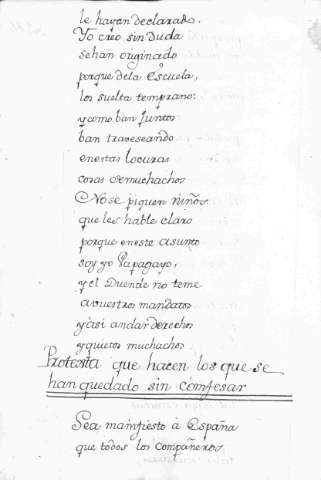 le hayan declarado.
Yo creo sin Duda
sehan originado
porque dela Escuela,
los suelta temprano:
y como ban Juntos
ban traveseando
enestas locuras
cosas de muchachos
No se piquen niños
que les hable claro
porque eneste asunto
soy yo Papagayo,
y el Duende no teme
a vuestros mandatos
y asi andar derechos
y quietos muchachos
Protesta que hacen los que se
han quedado sin comfesar
Sea manifiesto à España
que todos los compañeros